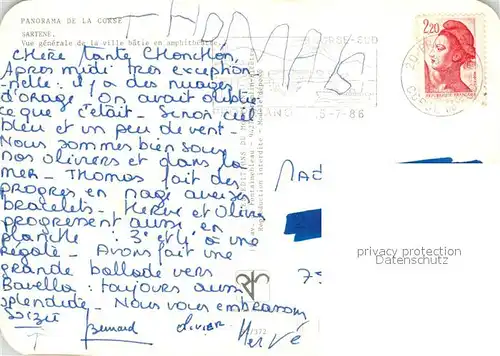 PANORAMA DE LA CORSE
SARTENE.
Vue générale de la ville bâtie en amphithéâtre.
THOMAS
CORSE-SUD
2,20
5-7-86
Chère Tante Chonchon,
Après midi très exception
-nelle : il y a des nuages
d'orage. On avait oublié
ce que c'était - Sinon ciel
bleu et un peu de vent -
Nous sommes bien sous
nos oliviers et dans la
mer - Thomas fait des
progrès en nage avec ses
bracelets - Hervé et Olivier
progressent aussi en
planche : 3e et 4e à une
régate - Avons fait une
grande ballade vers
Bavella : toujours aussi
splendide - Nous vous embrassons
Bernard Olivier
Hervé
Reproduction interdite
MAD
75
privacy protection
Datenschutz
/372